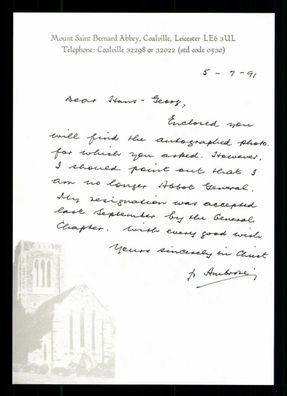 Mount Saint Bernard Abbey, Coalville, Leicester LE6 3UL
Telephone: Coalville 32298 or 32022 (std code 0530)
5 - 7 - 91
Dear Hans-Georg,
Enclosed you
will find the autographed photo
for which you asked. However,
I should point out that I
am no longer Abbot General.
My resignation was accepted
last September by the General
Chapter. With every good wish
Yours sincerely in Christ
fr Ambrose